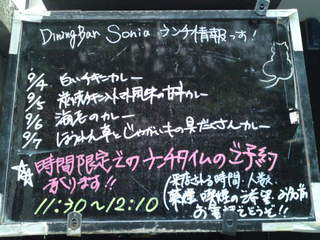 Dining Bar Sonia ランチ情報っす!
9/4 白いチキンカレー
9/5 炭焼チキン入トマト風味の野菜カレー
9/6 海老のカレー
9/7 ほうれん草とじゃがいもの具だくさんカレー
時間限定でのランチタイムのご予約
承ります!!
11:30~12:10
(来店される時間、人数
禁煙、喫煙のご希望、お名前
お電話でどうぞ!!